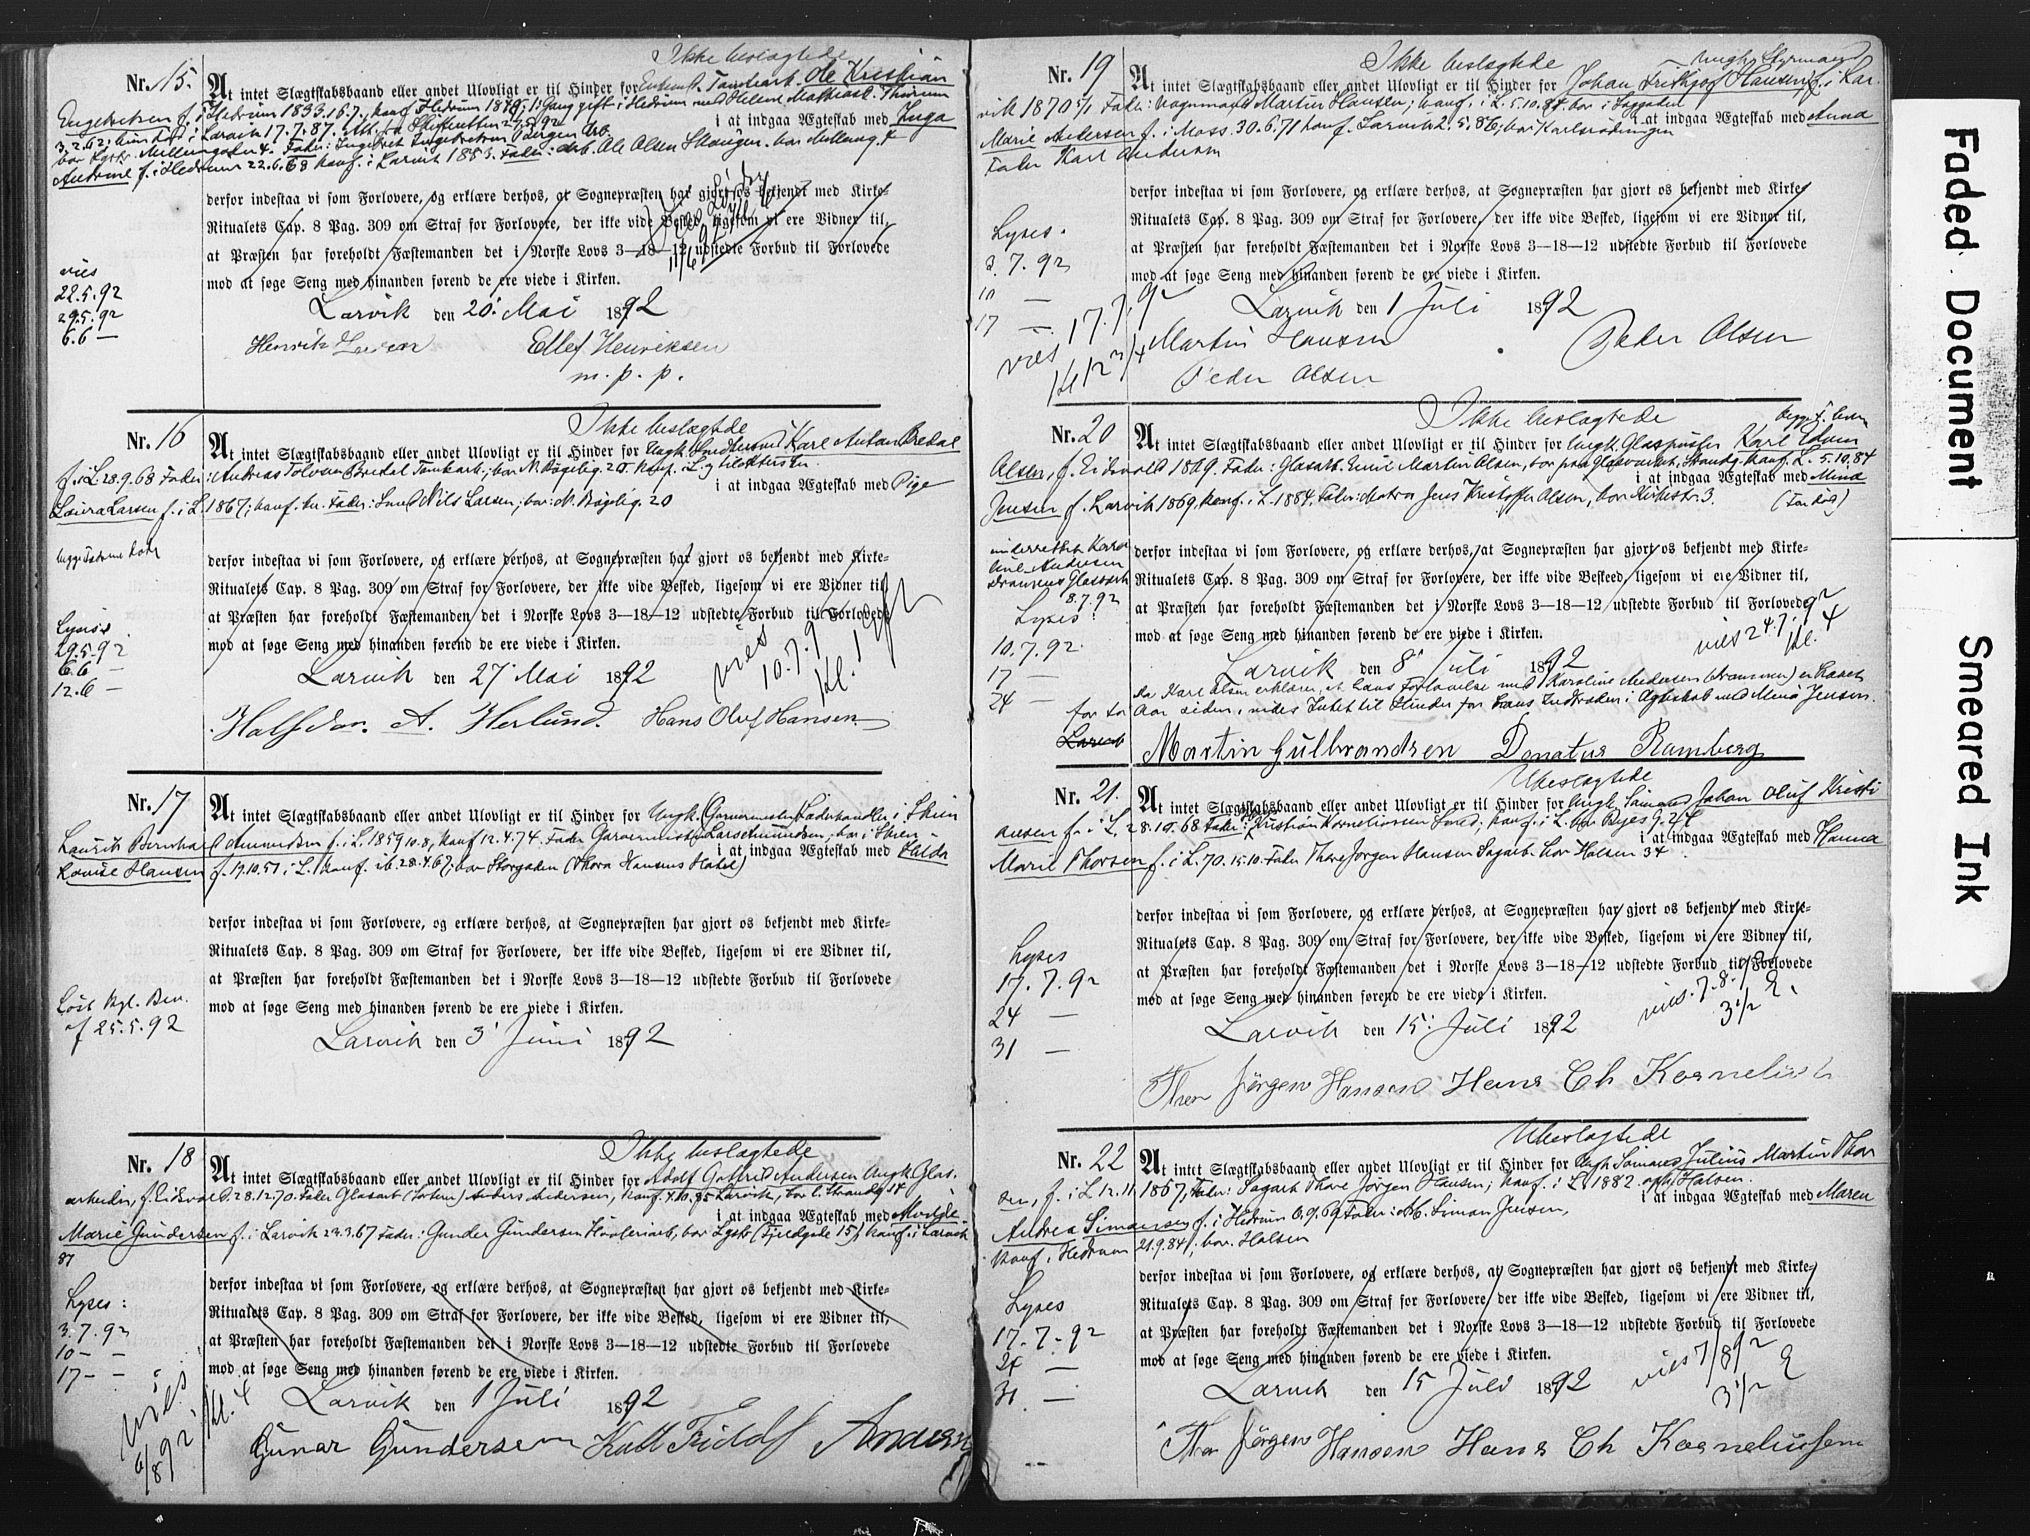 Ikke beslagtede
Nr. 15. At intet Slægtskabsbaand eller andet Ulovligt er til Hinder for Enkem. Tomtearb. Ole Kristian
Engebretsen f. i Hedrum 1833.16.7. konf. i Hedrum gift i Hedrum med Helene
i at indgaa Ægteskab med Inga
Andrine f. i Hedrum 22.6.68 konf. i Larvik Fader: arb. Ole Olsen Skaugen. bor
derfor indestaa vi som Forlovere, og erklære derhos, at Sognepræsten har gjort os bekjendt med Kirke-
Ritualets Cap. 8 Pag. 309 om Straf for Forlovere, der ikke vide Besked, ligesom vi ere Vidner til,
at Præsten har foreholdt Fæstemanden det i Norske Lovs 3—18—12 udstedte Forbud til Forlovede
mod at søge Seng med hinanden førend de ere viede i Kirken.
vies
22.5.92
29.5.92
6.6 —
Larvik den 20. Mai 1892
Henrik Ellef Henriksen
m. p. p.
Ikke beslagtede
Nr. 16 At intet Slægtskabsbaand eller andet Ulovligt er til Hinder for Ungk. Karl Anton Bredal
f. i L. 28.9.68 Fader: Andreas Tolvsen Bredal Tomtearb. bor N. Bøgelig. 20. konf. i L.
i at indgaa Ægteskab med Pige
Laura Larsen f. i L. 1867; konf. Fader: Smed Nils Larsen, bor: N. Bøgelig. 20
derfor indestaa vi som Forlovere, og erklære derhos, at Sognepræsten har gjort os bekjendt med Kirke-
Ritualets Cap. 8 Pag. 309 om Straf for Forlovere, der ikke vide Besked, ligesom vi ere Vidner til,
at Præsten har foreholdt Fæstemanden det i Norske Lovs 3—18—12 udstedte Forbud til Forlovede
mod at søge Seng med hinanden førend de ere viede i Kirken.
Lyses
29.5.92
6.6 —
12.6 —
vies 10.7.92 kl.
Larvik den 27 Mai 1892
Halfdan. A. Herlund. Hans Oluf Hansen
Nr. 17 At intet Slægtskabsbaand eller andet Ulovligt er til Hinder for Ungk. Garvermester Læderhandler i Skien
Laurits Bernhard Amundsen f. i L. 1859 10.8, konf 12.4.74. Fader Garvermester Lars Amundsen, bor i Skien
i at indgaa Ægteskab med Valda
Lovise Hansen f. 19.10.51 i L. konf. ib. 28.4.67; bor Storgaden (Thora Hansens Hotel)
derfor indestaa vi som Forlovere, og erklære derhos, at Sognepræsten har gjort os bekjendt med Kirke-
Ritualets Cap. 8 Pag. 309 om Straf for Forlovere, der ikke vide Besked, ligesom vi ere Vidner til,
at Præsten har foreholdt Fæstemanden det i Norske Lovs 3—18—12 udstedte Forbud til Forlovede
mod at søge Seng med hinanden førend de ere viede i Kirken.
Løst Kgl. Bev.
af 25.5.92
Larvik den 3 Juni 1892
Ikke beslagtede
Nr. 18 At intet Slægtskabsbaand eller andet Ulovligt er til Hinder for Adolf Gotfried Andersen Ungk. Glas-
arbeider, f. Eidsvold 28.12.70. Fader Glasarb. Anders Andersen, konf. 4.10.85 Larvik, bor L. Strandg. 14
i at indgaa Ægteskab med Molfde
Marie Gundersen f. i Larvik 29.3.67 Fader: Gunder Gundersen Høvleriarb, bor Lyst. (Fjeldgade 15), konf. i Larvik
derfor indestaa vi som Forlovere, og erklære derhos, at Sognepræsten har gjort os bekjendt med Kirke-
Ritualets Cap. 8 Pag. 309 om Straf for Forlovere, der ikke vide Besked, ligesom vi ere Vidner til,
at Præsten har foreholdt Fæstemanden det i Norske Lovs 3—18—12 udstedte Forbud til Forlovede
mod at søge Seng med hinanden førend de ere viede i Kirken.
Lyses:
3.7.92
10 — —
17 — —
vies 6/8 92 kl. 4
Larvik den 1 Juli 1892
Gunar Gundersen Karl Fridolf Andersen
Ikke beslagtede Ungk. Styrmand
Nr. 19 At intet Slægtskabsbaand eller andet Ulovligt er til Hinder for Johan Frithjof Hansen f. i Lar-
vik 1870 5/1 Fader: Vognmand Martin Hansen; konf. i L. 5.10.84. bor i
i at indgaa Ægteskab med Anna
Marie Andersen f. i Moss. 30.6.71 konf. Larvik 86; bor Karlsrødningen
Fader Karl Andersen
derfor indestaa vi som Forlovere, og erklære derhos, at Sognepræsten har gjort os bekjendt med Kirke-
Ritualets Cap. 8 Pag. 309 om Straf for Forlovere, der ikke vide Besked, ligesom vi ere Vidner til,
at Præsten har foreholdt Fæstemanden det i Norske Lovs 3—18—12 udstedte Forbud til Forlovede
mod at søge Seng med hinanden førend de ere viede i Kirken.
Lyses.
3.7.92
10 —
17 —
vies 17.7.92
Larvik den 1 Juli 1892
Martin Hansen Peder Olsen
Peder Olsen
Ikke beslagtede
Nr. 20 At intet Slægtskabsbaand eller andet Ulovligt er til Hinder for Ungk. Glaspuster Karl Edvin
Olsen, f. Eidsvold 1869. Fader: Glasarb. Emil Martin Olsen, bor paa Glasværket, Strandg. konf. L. 5.10.84
i at indgaa Ægteskab med Mina
Jensen f. Larvik 1869, konf. i L. 1884. Fader: Matros Jens Kristoffer Olsen, bor Kirkestr. 3.
derfor indestaa vi som Forlovere, og erklære derhos, at Sognepræsten har gjort os bekjendt med Kirke-
Ritualets Cap. 8 Pag. 309 om Straf for Forlovere, der ikke vide Besked, ligesom vi ere Vidner til,
at Præsten har foreholdt Fæstemanden det i Norske Lovs 3—18—12 udstedte Forbud til Forlovede
mod at søge Seng med hinanden førend de ere viede i Kirken.
8.7.92
Lyses:
10.7.92.
17 —
24 —
vies 24.7.92 kl. 4
Larvik den 8 Juli 1892
Da Karl Olsen erklærer, at hans Forlovelse med Karoline Andersen (Drammen) er hævet
for to Aar siden, vides Intet til Hinder for hans Indtræden i Ægteskab med Mina Jensen.
Martin Gulbrandsen Donatus Ramberg
Ubeslagtede
Nr. 21. At intet Slægtskabsbaand eller andet Ulovligt er til Hinder for Ungk. Sømand Johan Oluf Kristi
ansen f. i L. 28.10.68 Fader: Kristian Korneliussen Smed; konf. i L. bor Byes g. 24
i at indgaa Ægteskab med Hanna
Marie Thorsen f. i L. 70. 15.10. Fader Thore Jørgen Hansen Sagarb. bor Halsen 34
derfor indestaa vi som Forlovere, og erklære derhos, at Sognepræsten har gjort os bekjendt med Kirke-
Ritualets Cap. 8 Pag. 309 om Straf for Forlovere, der ikke vide Besked, ligesom vi ere Vidner til,
at Præsten har foreholdt Fæstemanden det i Norske Lovs 3—18—12 udstedte Forbud til Forlovede
mod at søge Seng med hinanden førend de ere viede i Kirken.
Lyses
17.7.92
24 —
31 —
vies. 7.8.92 3 1/2 E.
Larvik den 15. Juli 1892
Thor Jørgen Hansen Hans Ch Kornelius
Ubeslagtede
Nr. 22 At intet Slægtskabsbaand eller andet Ulovligt er til Hinder for Ungk. Sømand Julius Martin Thor
sen, f. i L. 12.11. 1867, Fader: Sagarb. Thore Jørgen Hansen; konf. i L. 1882. oph. Halsen.
i at indgaa Ægteskab med Maren
Andrea Simonsen f. i Hedrum 6.9.69 Fader: Arb. Simon Jensen,
konf. i Hedrum 21.9.84; bor. Halsen
derfor indestaa vi som Forlovere, og erklære derhos, at Sognepræsten har gjort os bekjendt med Kirke-
Ritualets Cap. 8 Pag. 309 om Straf for Forlovere, der ikke vide Besked, ligesom vi ere Vidner til,
at Præsten har foreholdt Fæstemanden det i Norske Lovs 3—18—12 udstedte Forbud til Forlovede
mod at søge Seng med hinanden førend de ere viede i Kirken.
Lyses
17.7.92
24 —
31. —
vies 7/8 92 3 1/2 E
Larvik den 15 Juli 1892
Thor Jørgen Hansen Hans Ch Korneliussen
Faded Document
Smeared Ink